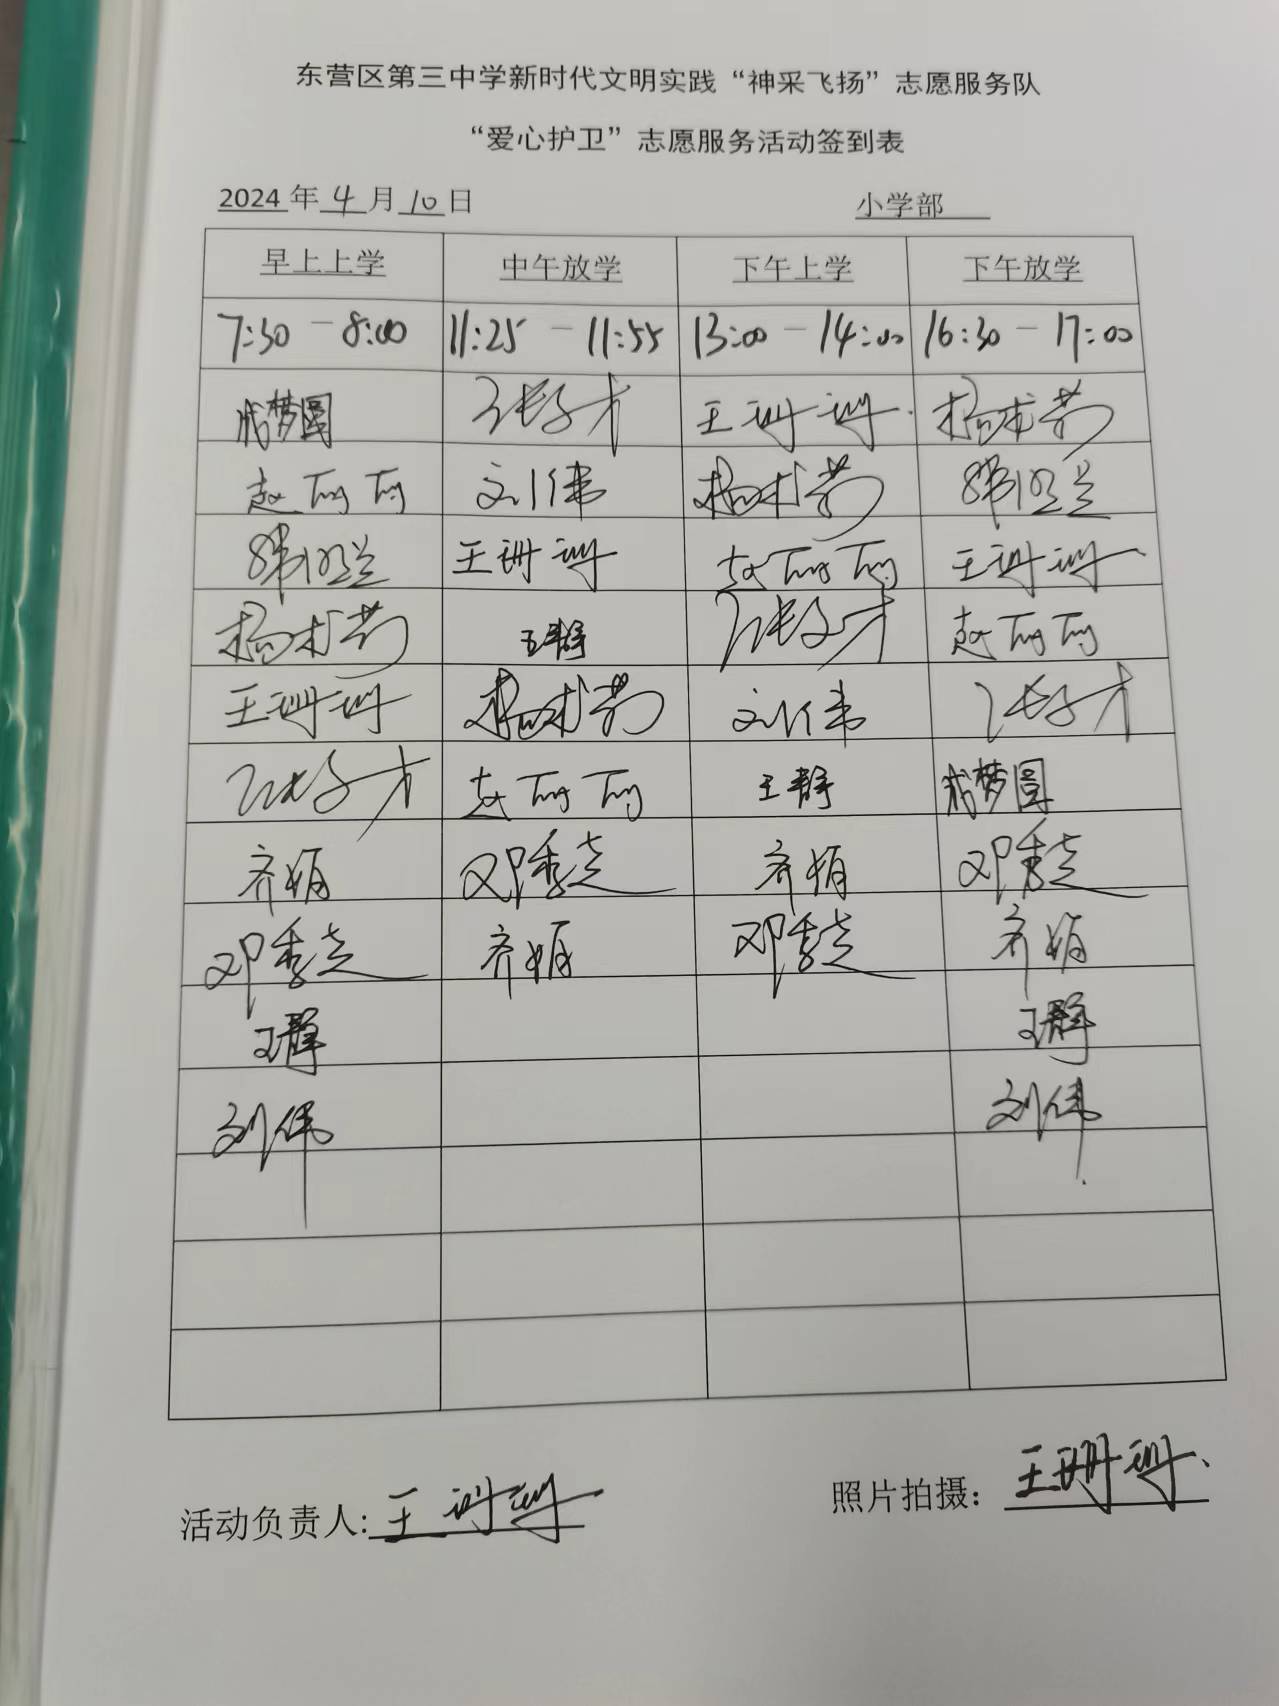 东营区第三中学新时代文明实践“神采飞扬”志愿服务队
“爱心护卫”志愿服务活动签到表
2024年4月10日 小学部
早上上学 中午放学 下午上学 下午放学
7:30-8:00 11:25-11:55 13:00-14:00 16:30-17:00
成梦圆 张子才 王珊珊
赵丽丽 刘伟
王珊珊 赵丽丽 王珊珊
王静 张子才 赵丽丽
王珊珊 刘伟 张子才
张子才 赵丽丽 王静 成梦圆
齐娟 邓季芝 齐娟 邓季芝
邓季芝 齐娟 邓季芝 齐娟
王静 王静
刘伟 刘伟
活动负责人:王珊珊 照片拍摄:王珊珊